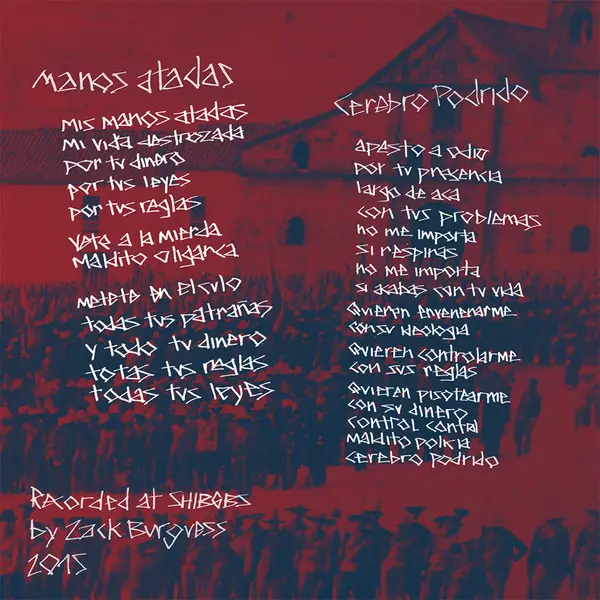 Manos atadas
Mis manos atadas
Mi vida destrozada
por tu dinero
por tus leyes
por tus reglas
Vete a la mierda
Maldito oligarca
metete en el culo
todas tus patrañas
y todo tu dinero
totas tus reglas
todas tus leyes
Cerebro Podrido
apesto a odio
por tu presencia
largo de aca
con tus problemas
no me importa
si respiras
no me importa
si acabas con tu vida
Quieren envenenarme
con su ideologia
Quieren controlarme
con sus reglas
Quieren pisotearme
con su dinero
control contal
maldito policia
cerebro podrido
Recorded at SHIBGBS
by Zack Burgvess
2015